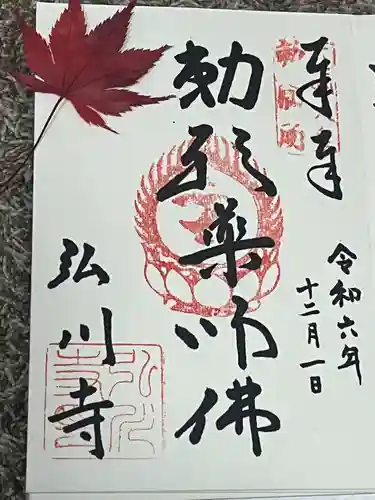 奉拝
令和六年
十二月一日
勅願薬師佛
弘川寺
弘川寺
勅願所